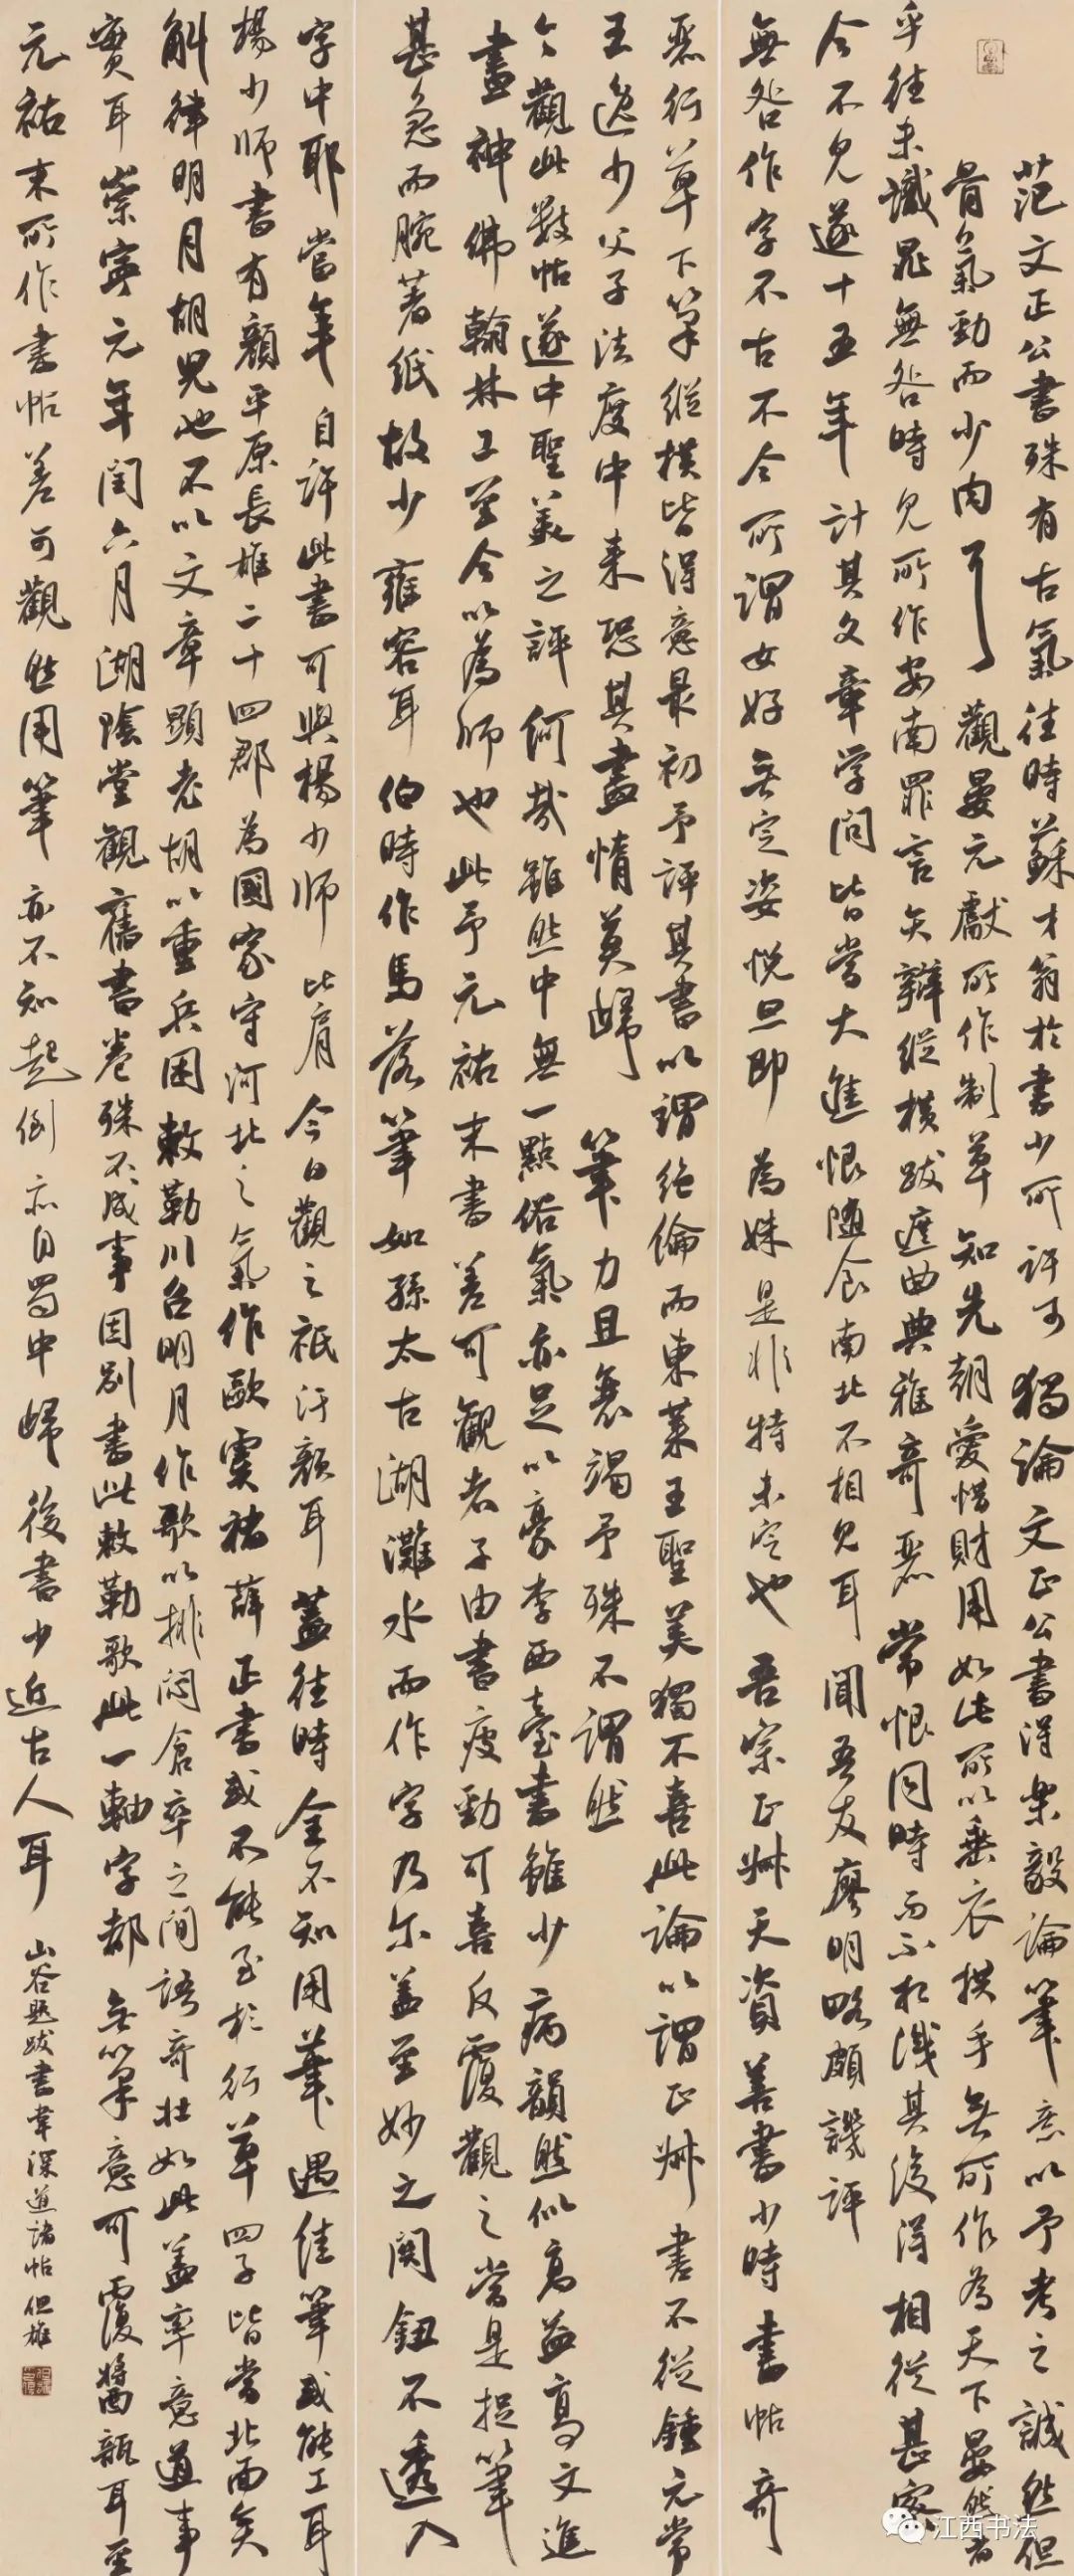 范文正公書殊有古氣往時蘇才翁於書少所許可獨論文正公書得樂毅論筆意以予考之誠然但
骨氣勁而少肉耳觀晏元獻所作制草知先朝愛惜財用如此所以垂衣拱手無所作為天下晏然者
乎往未識晁無咎時見所作安南罪言文辯縱橫跋遮曲典雅奇麗常恨同時而不相識其後得相從甚密
今不見遂十五年計其文章學問皆當大進恨隨食南北不相見耳聞吾友廖明略頗譏評
無咎作字不古不今所謂女好無定姿悅目即為姝是非特未定也吾宗正舛天資善書少時書帖奇
麗行草下筆縱橫皆得意最初予評其書以謂絕倫而東萊王聖美獨不喜此論以謂正舛書不從鍾元常
王逸少父子法度中來恐其盡惰莫歸筆力且衰竭予殊不謂然
今觀此數帖遂中聖美之評何哉雖然中無一點俗氣亦足以豪李西臺書雖少病韻然似高益高文進
畫神佛翰林工至今以為師也此予元祐末書差可觀者子由書瘦勁可喜反覆觀之當是捉筆
甚急而腕著紙故少雍容耳伯時作馬落筆如孫太古湖灘水而作字乃爾蓋至妙之闕鈕不透入
字中耶當年自許此書可與楊少師比肩今日觀之祇汗顏耳蓋往時全不知用筆遇佳筆或能工耳
楊少師書有顏平原長雄二十四郡為國家守河北之氣作歐虞褚薛正書或不能至於行草四子皆當北面矣
斛律明月胡兒也不以文章顯老胡以重兵困敕勒川召明月作歌以排悶倉卒之間語奇壯如此蓋率意道事
實耳崇寧元年閏六月湖陰堂觀舊書卷殊不成事因別書此敕勒歌此一軸字都無筆意可覆醬瓿耳至
元祐末所作書帖差可觀然用筆亦不知起倒亦自蜀中歸後書少近古人耳
山谷題跋書韋深道諸帖但雄
江西书法